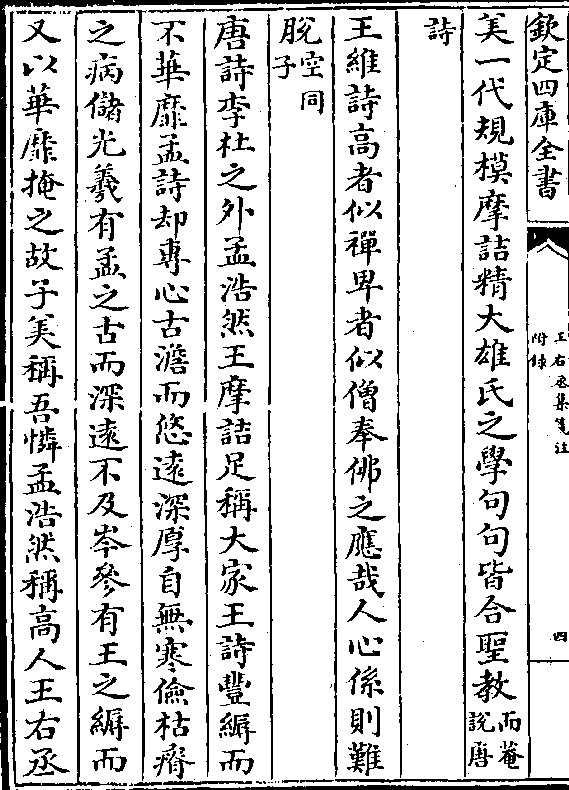 欽定四庫全書
王右丞集箋注
附錄
四
美一代規模摩詰精大雄氏之學句句皆合聖教而菴說唐
詩
王維詩高者似禪卑者似僧奉佛之應哉人心係則難
脫空同子
唐詩李杜之外孟浩然王摩詰足稱大家王詩豐縟而
不華靡孟詩却專心古澹而悠遠深厚自無寒儉枯瘠
之病儲光羲有孟之古而深遠不及岑參有王之縟而
又以華靡掩之故子美稱吾憐孟浩然稱高人王右丞